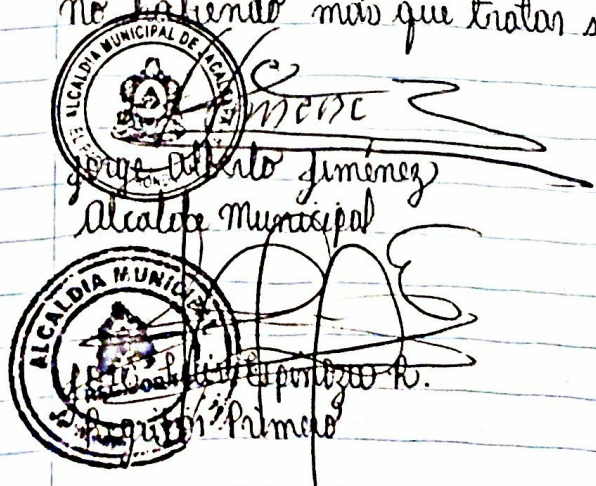 no habiendo más que tratar s
ALCALDIA MUNICIPAL DE
EL
Jorge Alberto Jiménez
Alcalde Municipal
ALCALDIA MUNICIPAL
Espinoza R.
Regidor Primero